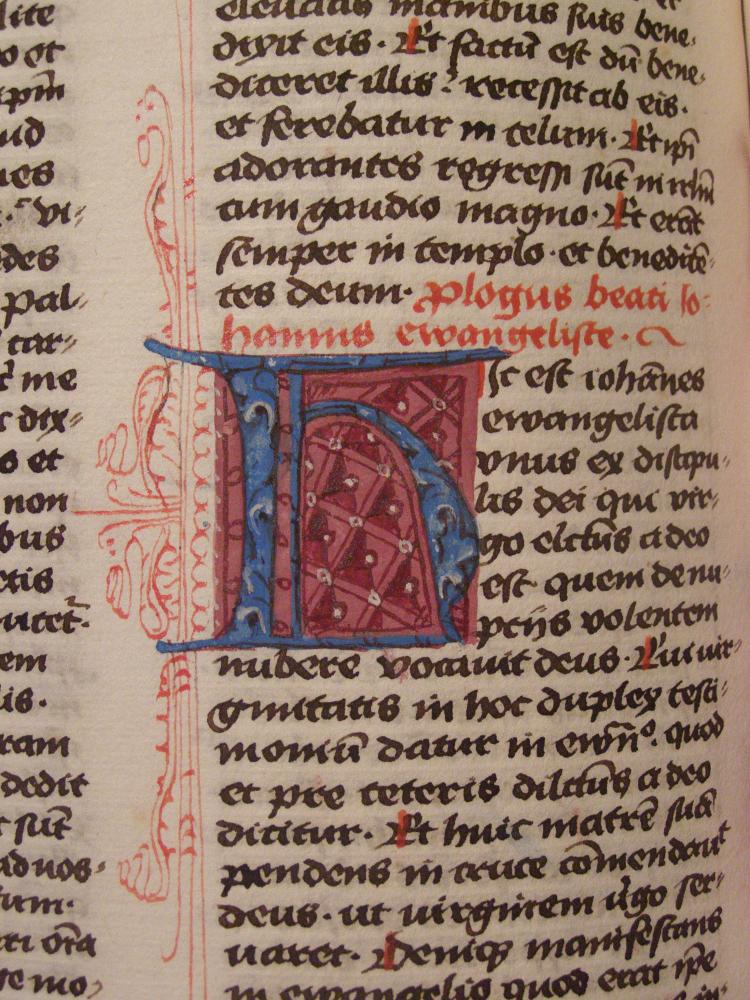 lite
o et
spm̄
ud
ues
vi-
des
pal-
tar-
me
dix-
s et
non
bus
etis
utet.
em
lis.
ram
dedit
sūt
ad uos.
tum.
ti ōra
re mo,
eleuatis manibus suis bene,
dixit eis. Et factū est dū bene,
diceret illis: recessit ab eis.
et ferebatur in celum. Et ip̄i
adorantes regressi sūt in irłm
cum gaudio magno. Et erāt
semper in templo. et benedicē,
tes deum. plogus beati Jo-
hannis ewangeliste.
Hic est iohānes
ewangelista
vnus ex discipu-
lis dei qui vir-
go electus a deo
est quem de nu-
pcijs volentem
nubere vocauit deus. Cui vir-
ginitatis in hoc duplex testi-
moniū datur in ewn̄º. quod
et pre ceteris dilctūs a deo
dicitur. Et huic matrē suā
pendens in cruce cōmendauit
deus. ut uirginem ũgo ser-
uaret. Deniq₃ manifestans
in ewangelio quod erat ip̄e